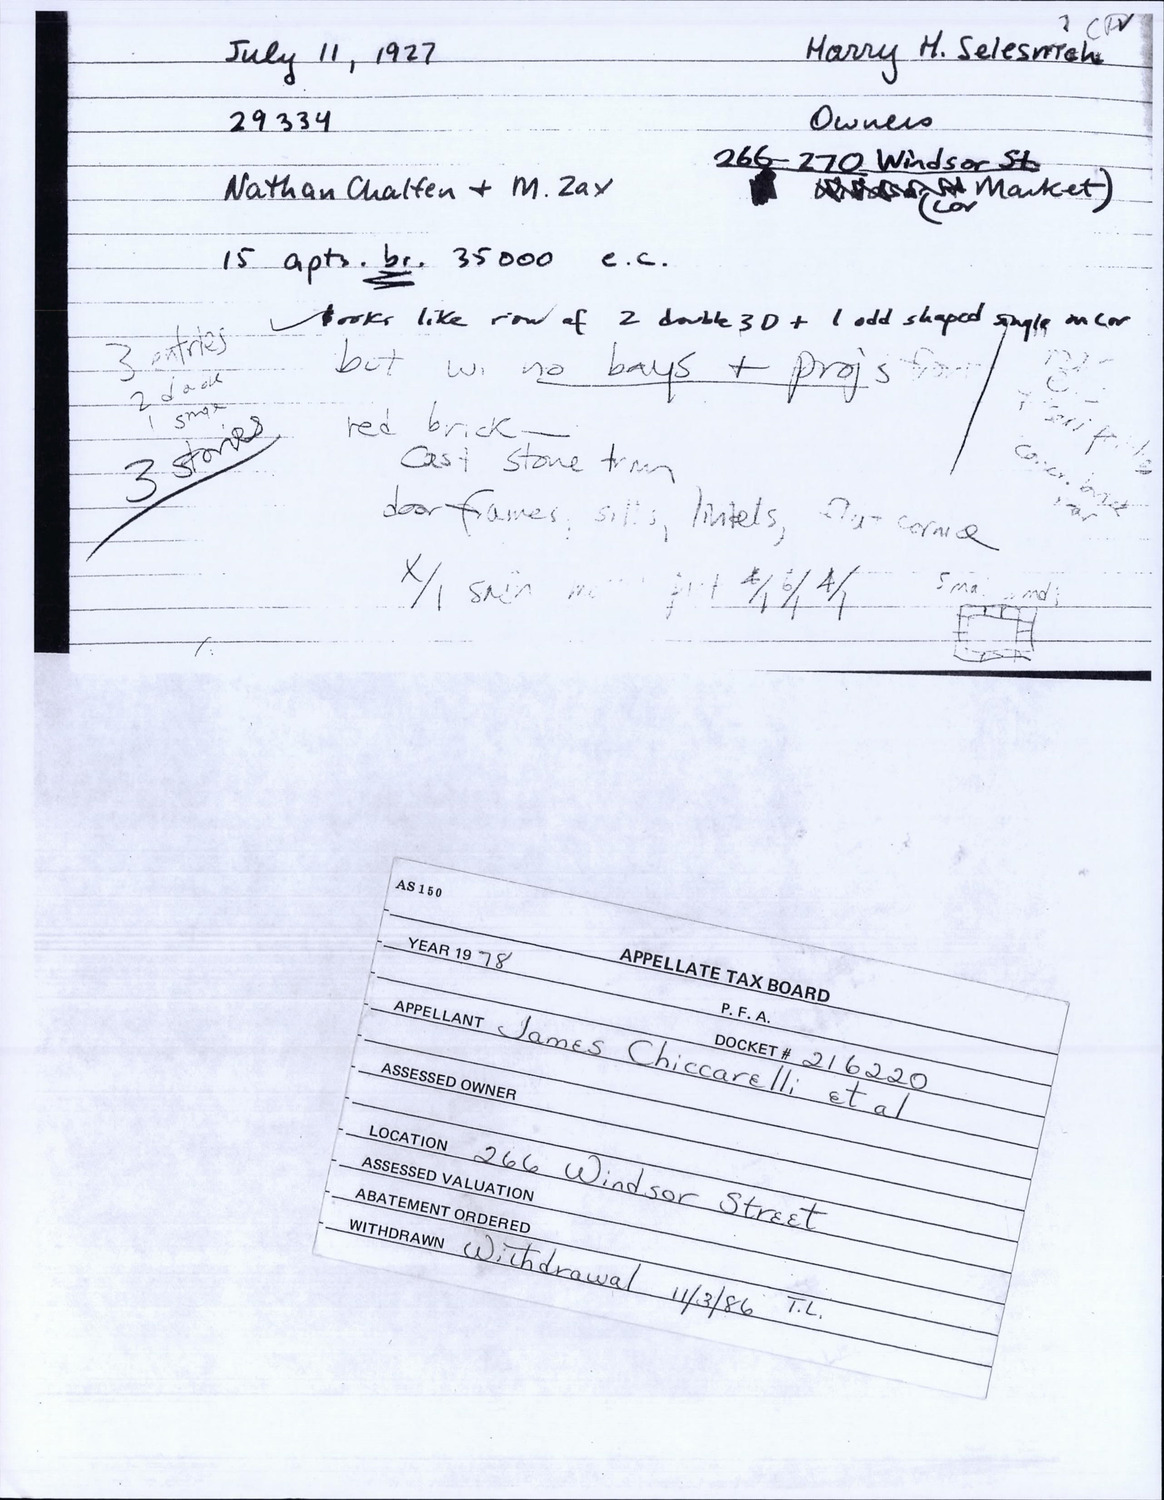 July 11, 1927
Harry H. Selesnick
29334
Owners
266-270 Windsor St
Nathan Chalfen + M. Zax
(cor Market)
15 apts. br. 35000 e.c.
looks like row of 2 double 3D + 1 odd shaped single on cor
3 entries
but w. no bays + projs
3 stories
red brick—
Cast stone trim
door frames, sills, lintels,
X/1
4/1 6/1 4/1
AS 150
YEAR 19 78
APPELLATE TAX BOARD
P. F. A.
DOCKET # 216220
APPELLANT James Chiccarelli et al
ASSESSED OWNER
LOCATION 266 Windsor Street
ASSESSED VALUATION
ABATEMENT ORDERED
WITHDRAWN Withdrawal 11/3/86 T.L.